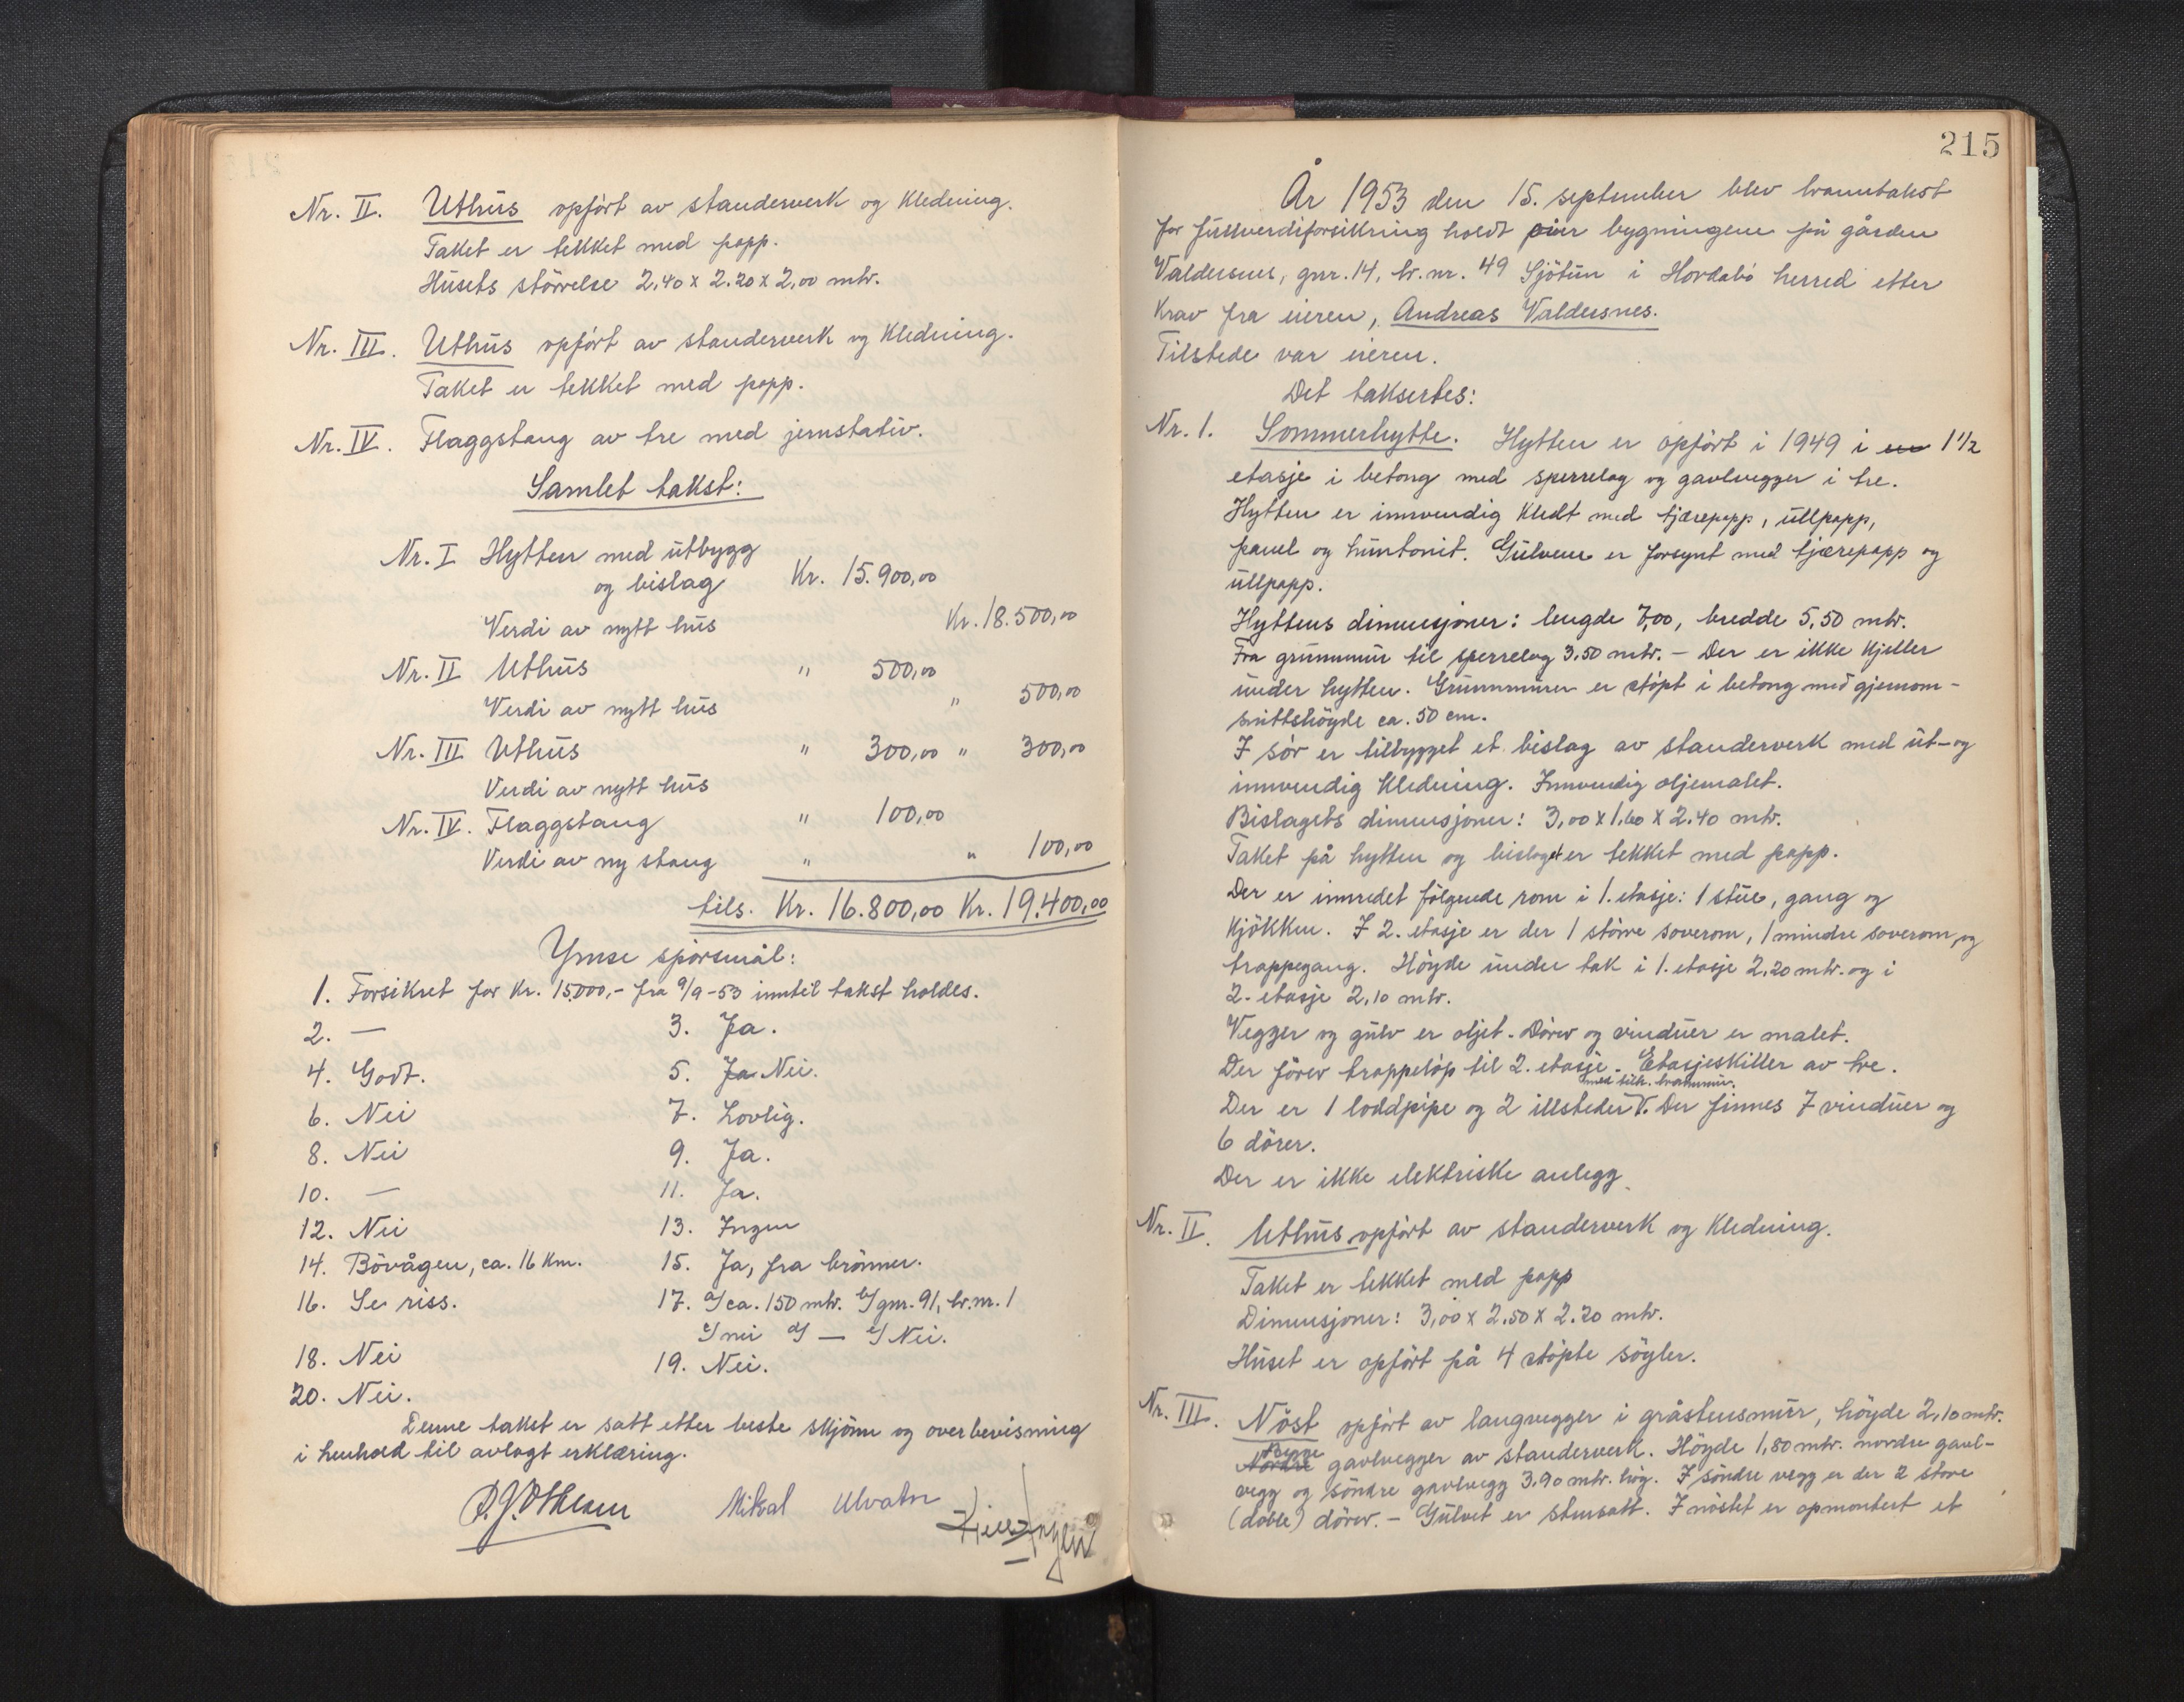 Nr. II. Uthus opført av standerverk og kledning.
Taket er tekket med papp.
Husets størrelse 2,40 x 2.20 x 2,00 mtr.
Nr. III. Uthus opført av standerverk og kledning.
Taket er tekket med papp.
Nr. IV. Flaggstang av tre med jernstativ.
Samlet takst:
Nr. I Hytten med utbygg
og bislag Kr. 15.900,00
Verdi av nytt hus Kr. 18.500,00
Nr. II Uthus " 500,00
Verdi av nytt hus " 500,00
Nr. III Uthus " 300,00 " 300,00
Verdi av nytt hus
Nr. IV. Flaggstang " 100,00
Verdi av ny stang " " 100,00
tils. Kr. 16.800,00 Kr. 19.400,00
Ymse spørsmål:
1. Forsikret for Kr. 15000,- fra 9/9-53 inntil takst holdes.
2. — 3. Ja.
4. Godt. 5. Ja Nei.
6. Nei 7. Lovlig.
8. Nei 9. Ja.
10. — 11. Ja.
12. Nei 13. Ingen
14. Bövågen, ca. 16 km. 15. Ja, fra brönner.
16. Se riss. 17. a/ ca. 150 mtr. b/ gnr. 91, br.nr. 1
c/ nei d/ — e/ Nei.
18. Nei 19. Nei.
20. Nei.
Denne takst er satt etter beste skjönn og overbevisning
i henhold til avlagt erklæring.
Mikal
215
År 1953 den 15. september blev branntakst
for fullverdiforsikring holdt over bygningene på gården
Valdersnes, gnr. 14, br. nr. 49 Sjötun i Hordabö herred etter
krav fra eieren, Andreas Valdersnes.
Tilstede var eieren.
Det taksertes:
Nr. 1. Sommerhytte. Hytten er opført i 1949 i en 1 1/2
etasje i betong med sperrelag og gavlvegger i tre.
Hytten er innvendig kledt med tjærepapp, ullpapp,
panel og huntonit. Gulvene er forsynt med tjærepapp og
ullpapp.
Hyttens dimensjoner: lengde 7,00, bredde 5,50 mtr.
Fra grunnmur til sperrelag 3.50 mtr. - Der er ikke kjeller
under hytten. Grunnmuren er støpt i betong med gjennom-
snittshöyde ca. 50 cm.
I sør er tilbygget et bislag av standerverk med ut- og
innvendig kledning. Innvendig oljemalet.
Bislagets dimensjoner: 3,00 x 1,60 x 2.40 mtr.
Taket på hytten og bislaget er tekket med papp.
Der er innredet følgende rom i 1. etasje: 1 stue, gang og
kjökken. I 2. etasje er der 1 större soverom, 1 mindre soverom, og
trappegang. Höyde under tak i 1. etasje 2.20 mtr. og i
2. etasje 2,10 mtr.
Vegger og gulv er oljet. Dörer og vinduer er malet.
Der förer trappelöp til 2. etasje. Etasjeskiller av tre.
med tilh. brannmur.
Der er 1 loddpipe og 2 illsteder V. Der finnes 7 vinduer og
6 dörer.
Der er ikke elektriske anlegg.
Nr. II. Uthus opført av standerverk og kledning.
Taket er tekket med papp
Dimensjoner: 3,00 x 2.50 x 2.20 mtr.
Huset er opført på 4 støpte söyler.
Nr. III. Nöst opført av langvegger i gråstensmur, höyde 2,10 mtr.
Begge
Nordre gavlvegger av standerverk. Höyde 1,80 mtr. nordre gavl-
vegg og söndre gavlvegg 3.90 mtr. höy. I söndre vegg er der 2 store
(doble) dörer. - Gulvet er stensatt. I nöstet er opmontert et